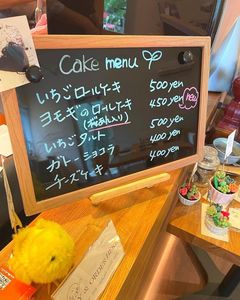 Cake menu
いちごロールケーキ 500yen
ヨモギのロールケーキ 450yen new
(桜あん入り)
いちごタルト 500yen
ガトーショコラ 400yen
チーズケーキ 400yen